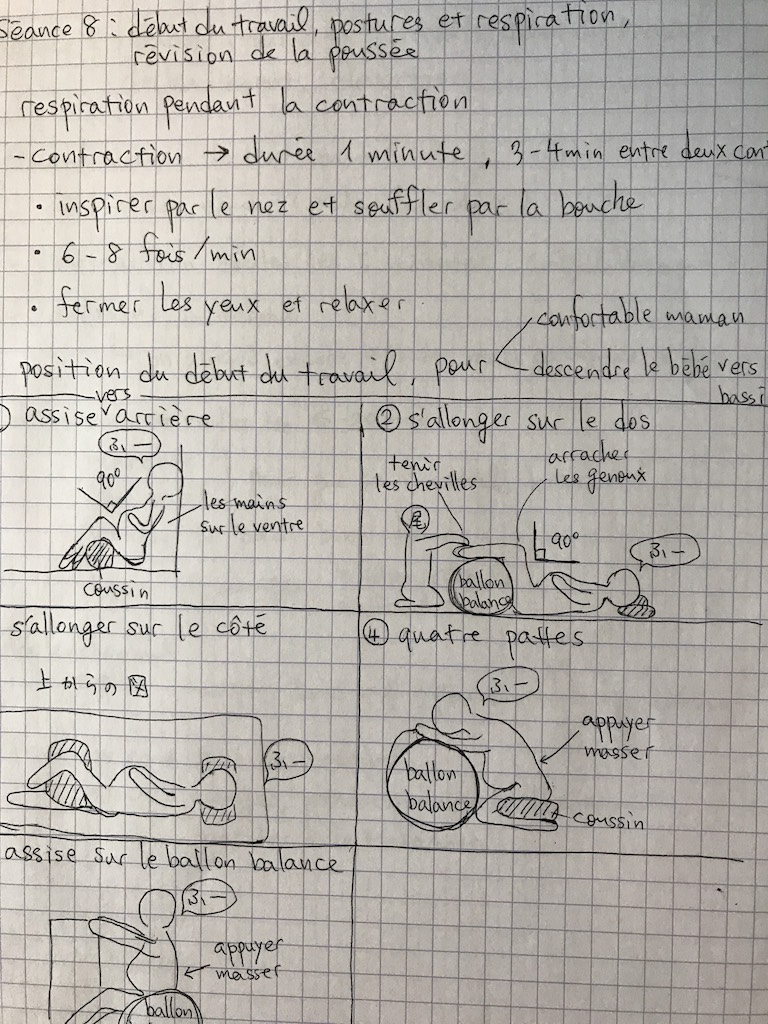 Séance 8 : début du travail, postures et respiration,
révision de la poussée
respiration pendant la contraction
- contraction → durée 1 minute, 3-4min entre deux cont
• inspirer par le nez et souffler par la bouche
• 6-8 fois/min
• fermer les yeux et relaxer
position du début du travail, pour
confortable maman
descendre le bébé vers
bassi
assise vers arrière
ふぅー
90°
les mains
sur le ventre
coussin
② s'allonger sur le dos
tenir
les chevilles
arracher
les genoux
90°
ふぅー
ballon
balance
s'allonger sur le côté
上からの図
ふぅー
④ quatre pattes
ふぅー
appuyer
masser
ballon
balance
coussin
assise sur le ballon balance
ふぅー
appuyer
masser
ballon